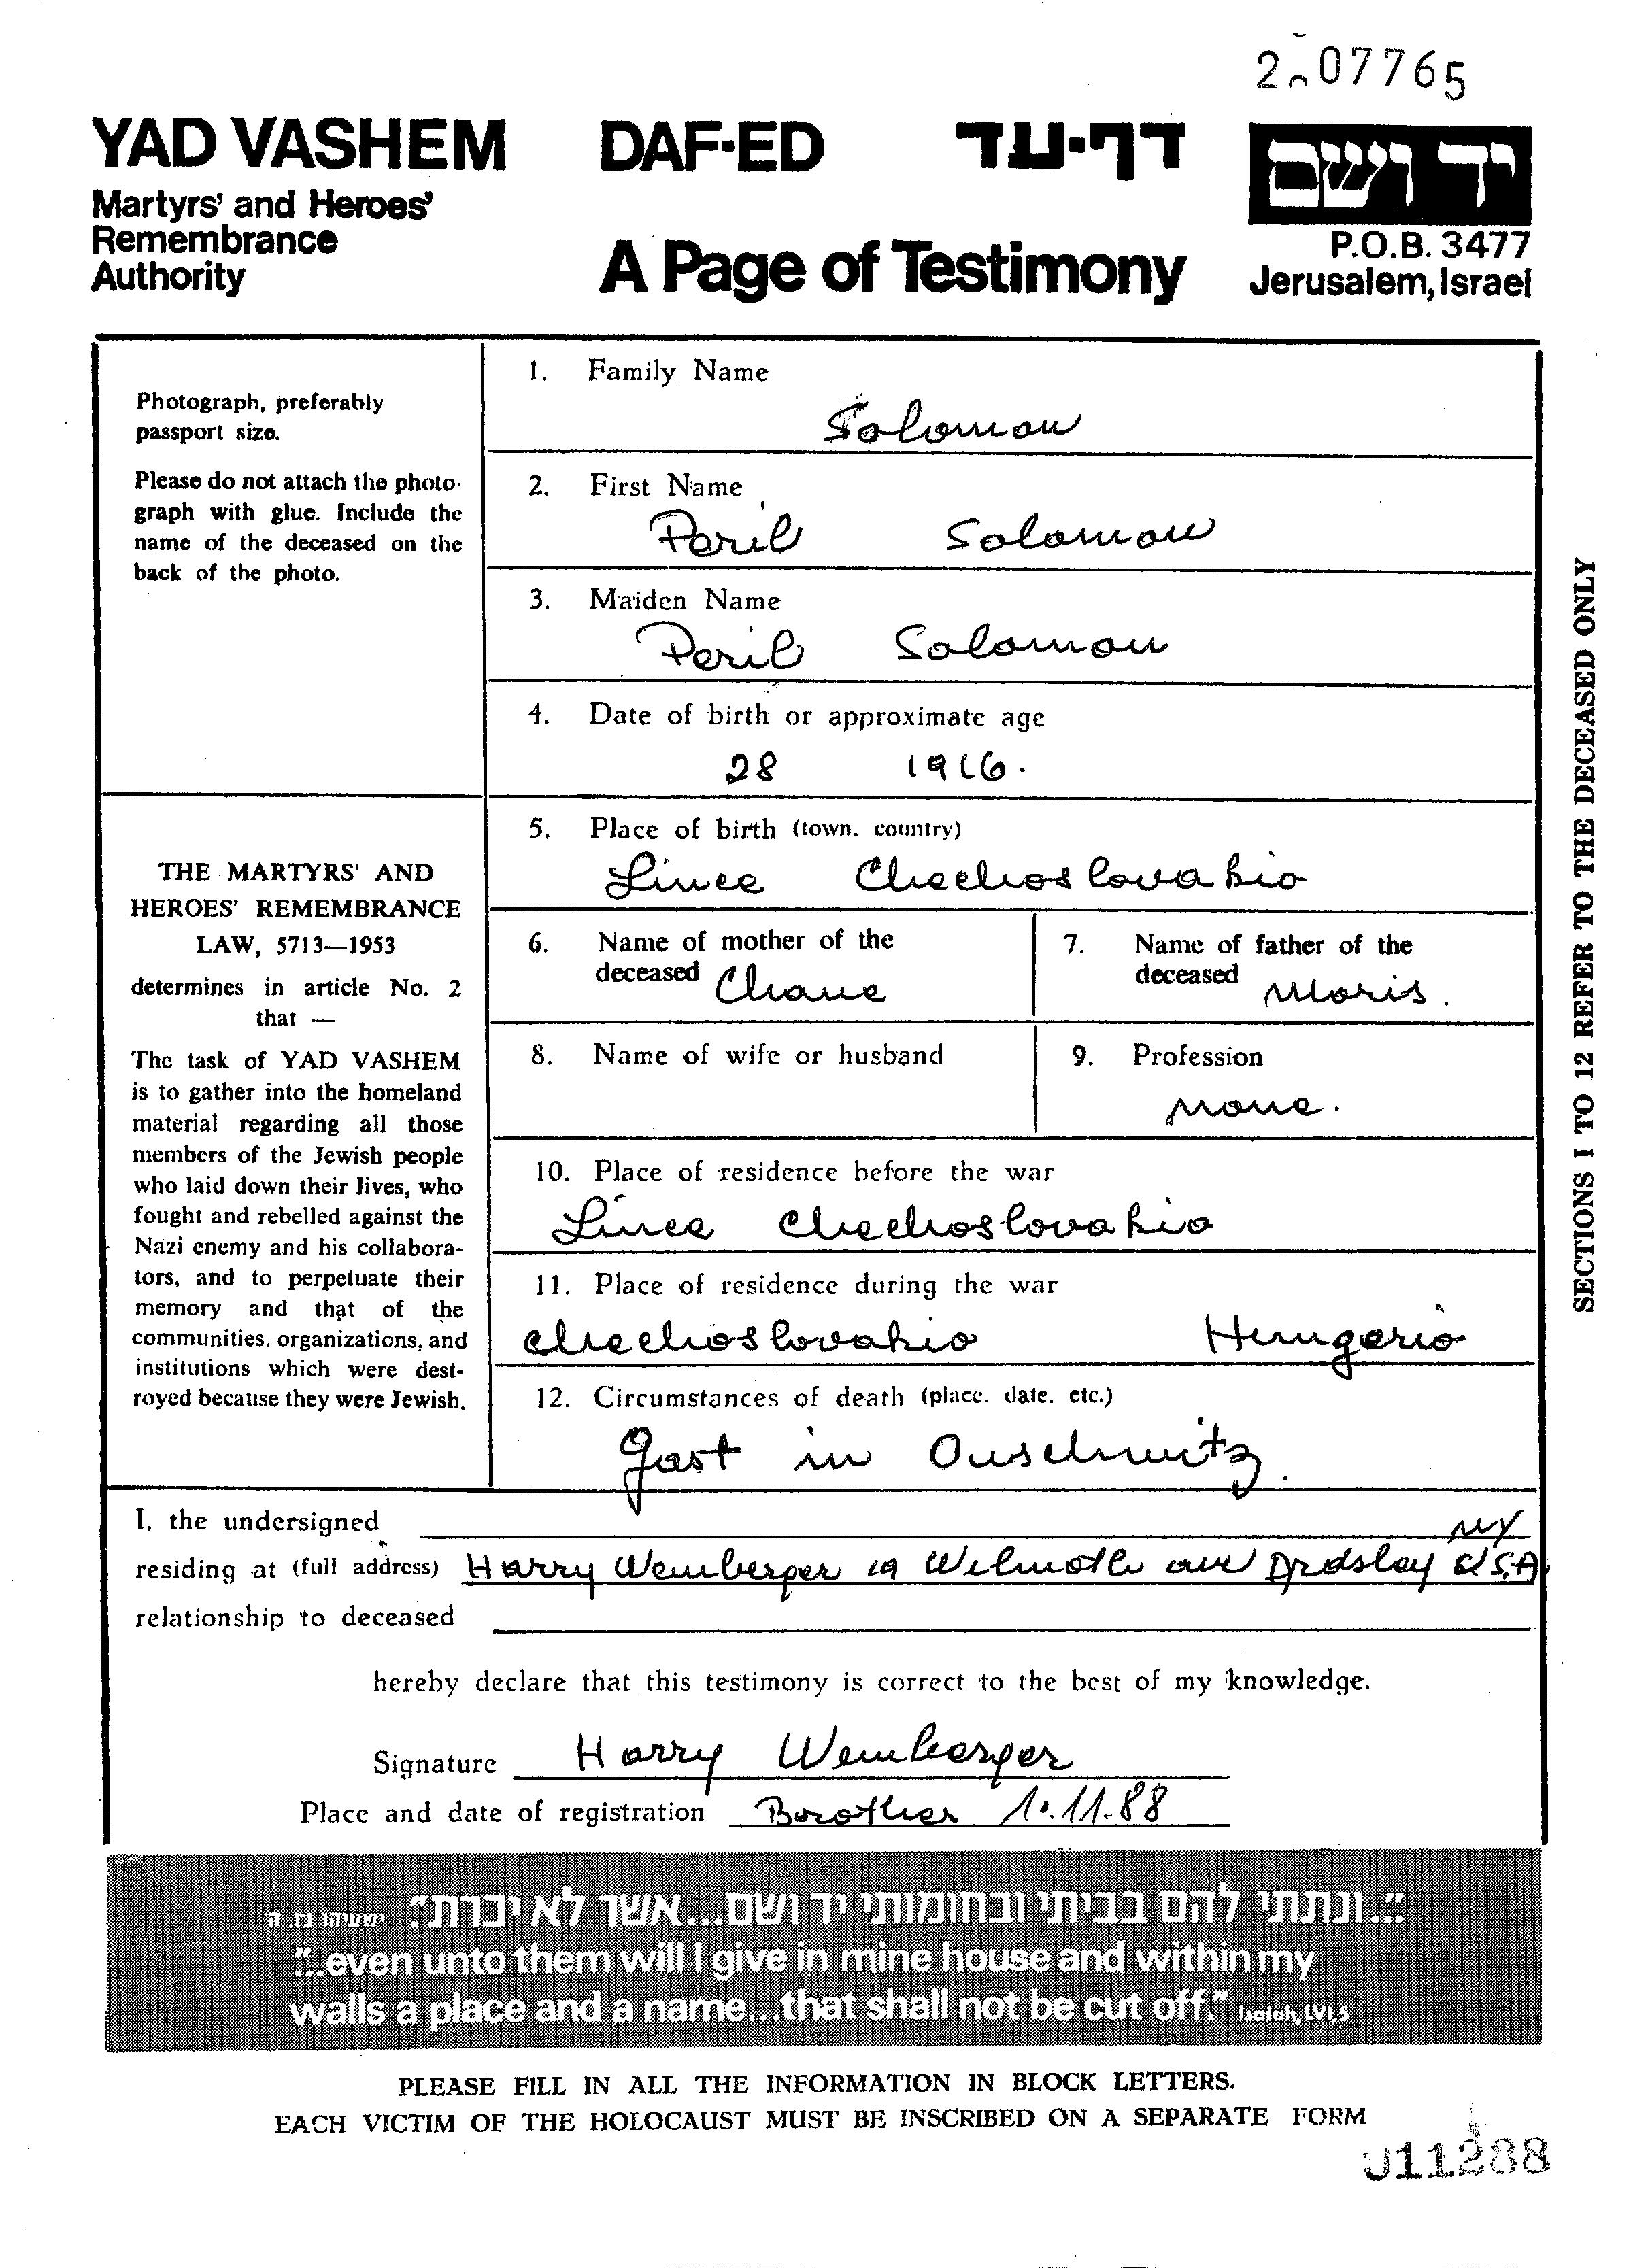 207765
YAD VASHEM DAF-ED דף-עד יד ושם
Martyrs' and Heroes'
Remembrance
Authority
A Page of Testimony
P.O.B. 3477
Jerusalem, Israel
Photograph, preferably
passport size.
Please do not attach the photo-
graph with glue. Include the
name of the deceased on the
back of the photo.
THE MARTYRS' AND
HEROES' REMEMBRANCE
LAW, 5713—1953
determines in article No. 2
that —
The task of YAD VASHEM
is to gather into the homeland
material regarding all those
members of the Jewish people
who laid down their lives, who
fought and rebelled against the
Nazi enemy and his collabora-
tors, and to perpetuate their
memory and that of the
communities, organizations, and
institutions which were dest-
royed because they were Jewish.
1. Family Name
Solomon
2. First Name
Peril Solomon
3. Maiden Name
Peril Solomon
4. Date of birth or approximate age
28 1916.
5. Place of birth (town, country)
Lince Chechoslovakio
6. Name of mother of the
deceased Chane
7. Name of father of the
deceased Moris.
8. Name of wife or husband
9. Profession
None.
10. Place of residence before the war
Lince Chechoslovakio
11. Place of residence during the war
Chechoslovakio Hungerio
12. Circumstances of death (place, date, etc.)
gast in Ouschwitz.
SECTIONS 1 TO 12 REFER TO THE DECEASED ONLY
I, the undersigned
NY
residing at (full address) Harry Weinberger 19 Wilmoth ave Ardsley USA
relationship to deceased
hereby declare that this testimony is correct to the best of my knowledge.
Signature Harry Weinberger
Place and date of registration Brother 10.11.88
"...ונתתי להם בביתי ובחומותי יד ושם...אשר לא יכרת". ישעיהו נו, ה
"...even unto them will I give in mine house and within my
walls a place and a name...that shall not be cut off." Isaiah, LVI,5
PLEASE FILL IN ALL THE INFORMATION IN BLOCK LETTERS.
EACH VICTIM OF THE HOLOCAUST MUST BE INSCRIBED ON A SEPARATE FORM
011288